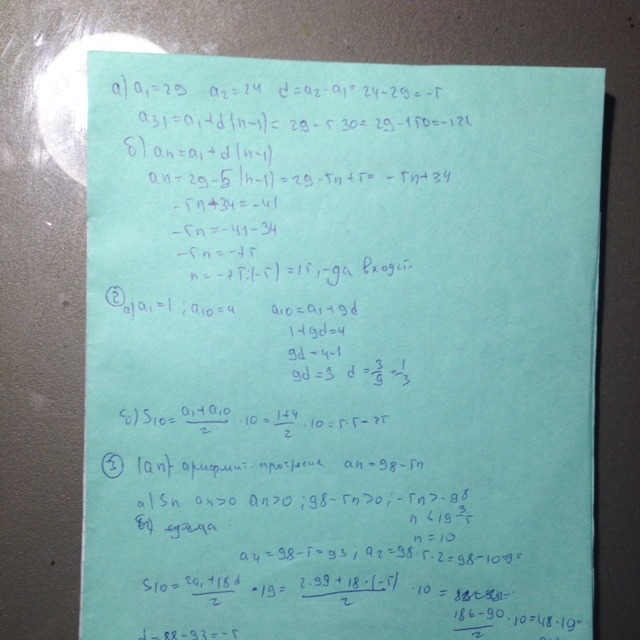 а) a1=29 a2=24 d=a2-a1=24-29=-5
a31=a1+d(n-1)=29-5·30=29-150=-121
б) an=a1+d(n-1)
an=29-5(n-1)=29-5n+5=-5n+34
-5n+34=-41
-5n=-41-34
-5n=-75
n=-75:(-5)=15, -да входит
② а) a1=1; a10=4 a10=a1+9d
1+9d=4
9d=4-1
9d=3 d=3/9=1/3
б) S10=(a1+a10)/2·10=(1+4)/2·10=5·5=25
③ (an) арифмет. прогрессия an=98-5n
а) Sn an>0 an>0; 98-5n>0; -5n>-98
n<19 3/5
n=10
a4=98-5=93; a2=98-5·2=98-10=
S10=(2a1+18d)/2·19=(2·99+18·(-5))/2·10=
(186-90)/2·10=48·19=
d=88-93=-5